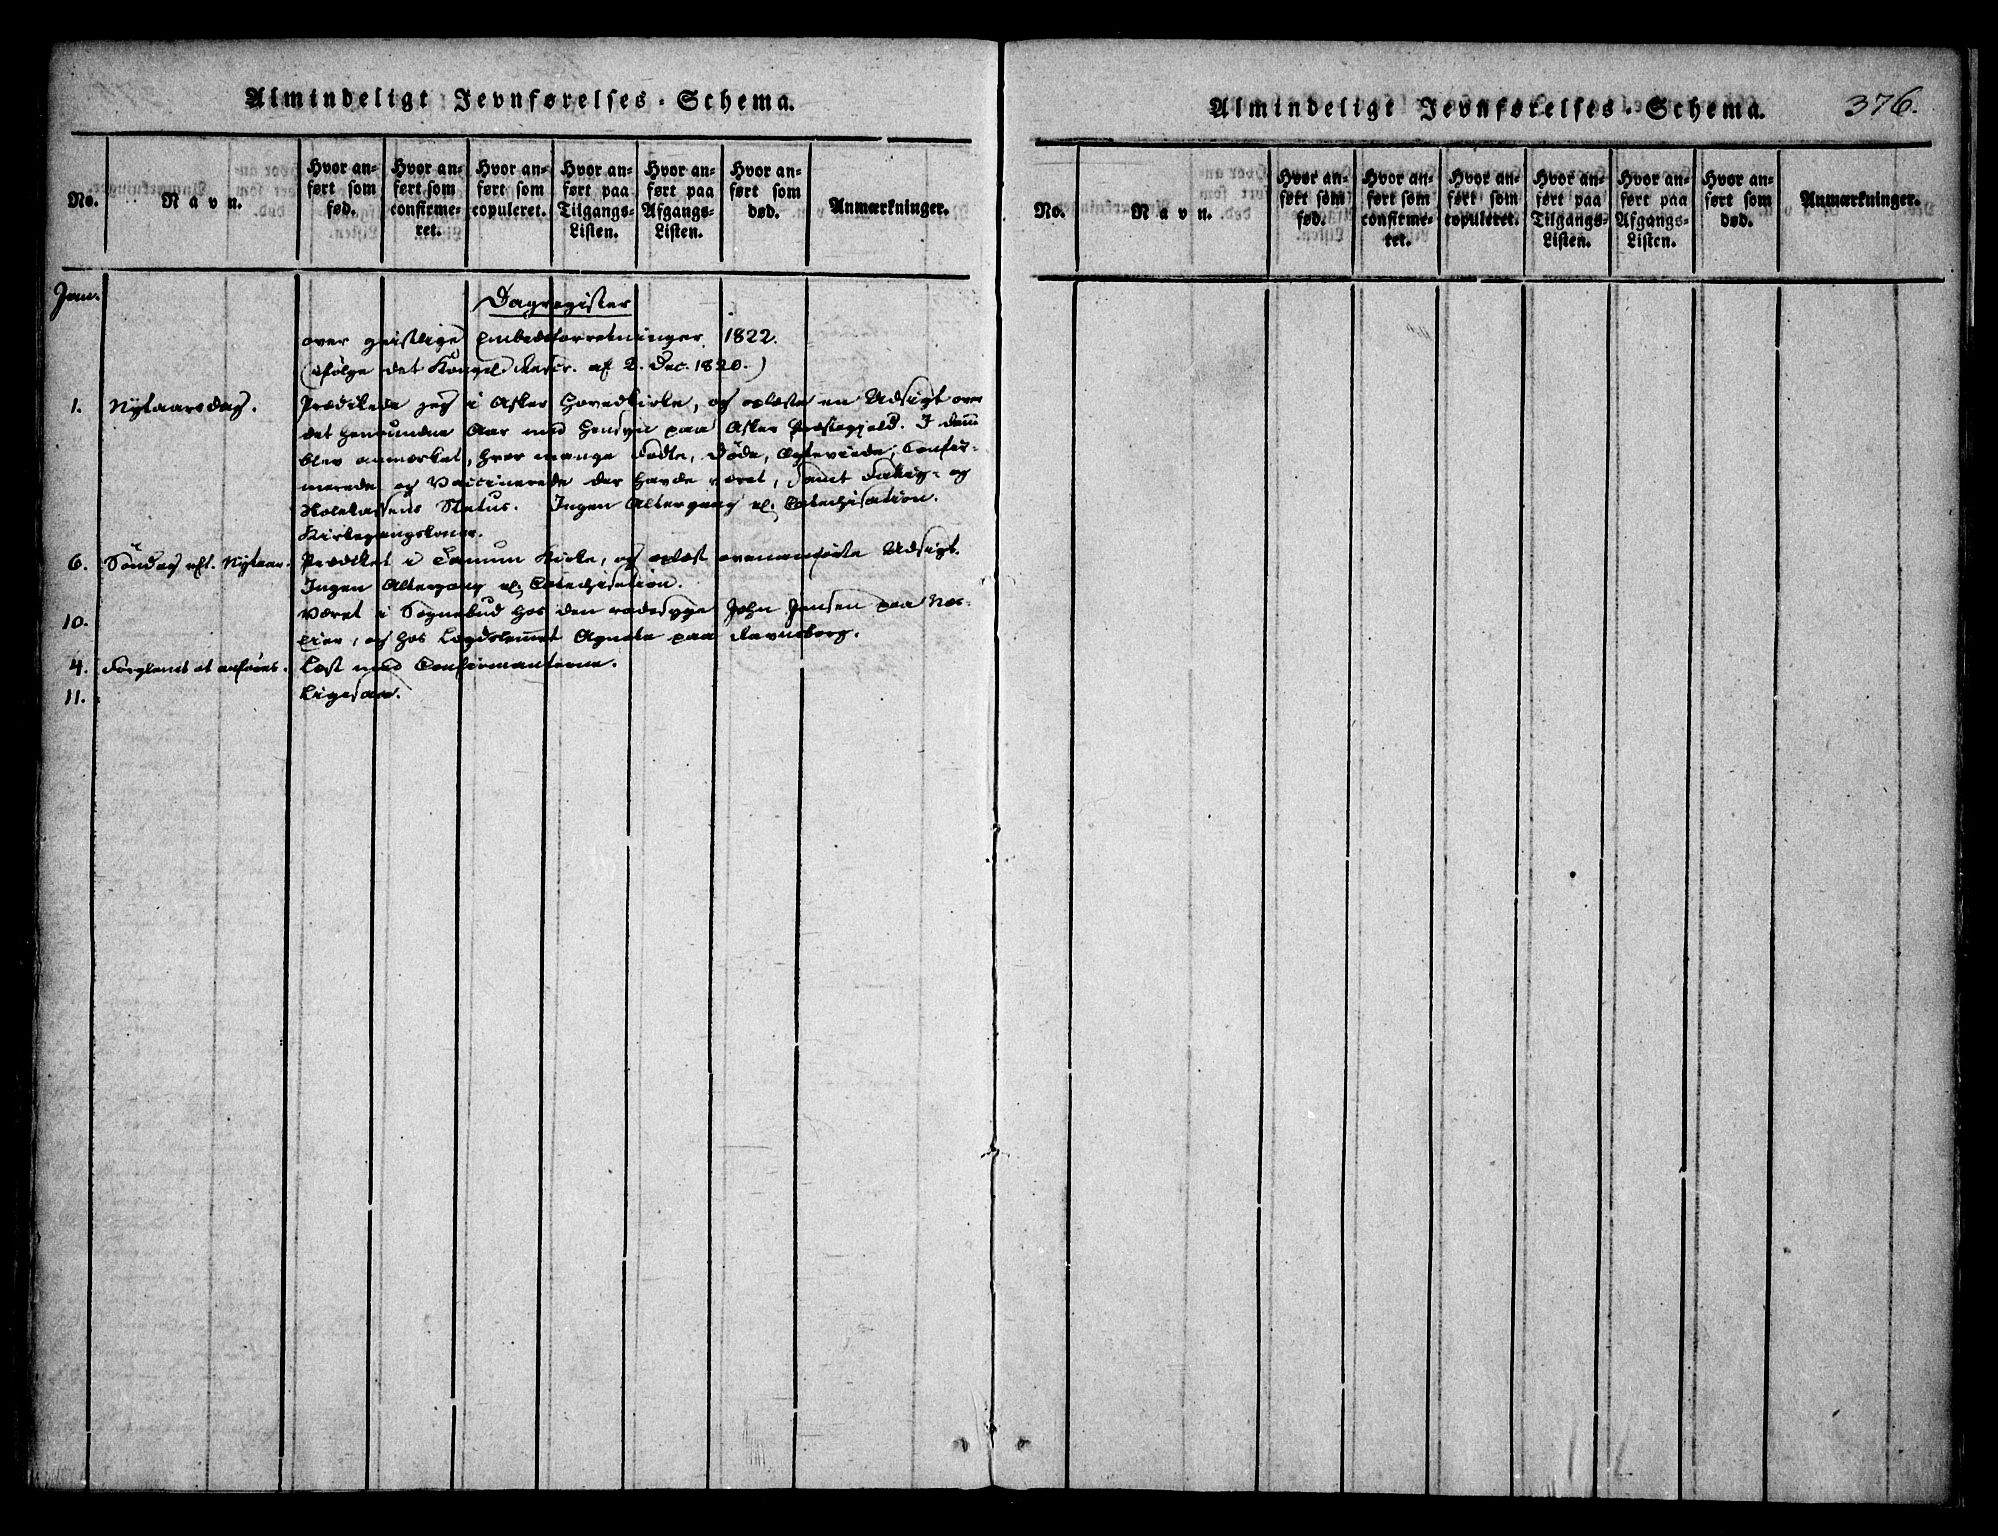 Almindeligt Jevnførelses-Schema.
No.
Navn.
Hvor anført som fød.
Hvor anført som confirmeret.
Hvor anført som copuleret.
Hvor anført paa Tilgangs-Listen.
Hvor anført paa Afgangs-Listen.
Hvor anført som død.
Anmærkninger.
Jan.
Dagregister
over geistlige Embedsforretninger 1822.
(ifølge det Kongel. Rescr. af 2. Dec. 1820.)
1. Nytaarsdag. Prædikede jeg i Asker Hovedkirke, og oplæste en Udsigt over
det henrundne Aar med Hensyn paa Asker Præstegjeld. I dem
blev anmærket, hvor mange Fødte, Døde, Ægteviede, Confir-
merede og Vaccinerede der havde været, samt Fattig- og
Skolekassens Status. Ingen Altergang el. Catechisation.
Kirkegangskoner.
6. Søndag eft. Nytaar. Prædiket i Tanum Kirke, og oplæst ovenanførte Udsigt.
Ingen Altergang el. Catechisation.
10. Været i Sognebud hos den radesyge John Jensen paa Nes-
øen, og hos Lægdslemmet Agnete paa Ravnsborg.
4. Forglemt at anføres. Læst med Confirmanterne.
11. Ligesaa.
Almindeligt Jevnførelses-Schema.
376.
No.
Navn.
Hvor anført som fød.
Hvor anført som confirmeret.
Hvor anført som copuleret.
Hvor anført paa Tilgangs-Listen.
Hvor anført paa Afgangs-Listen.
Hvor anført som død.
Anmærkninger.